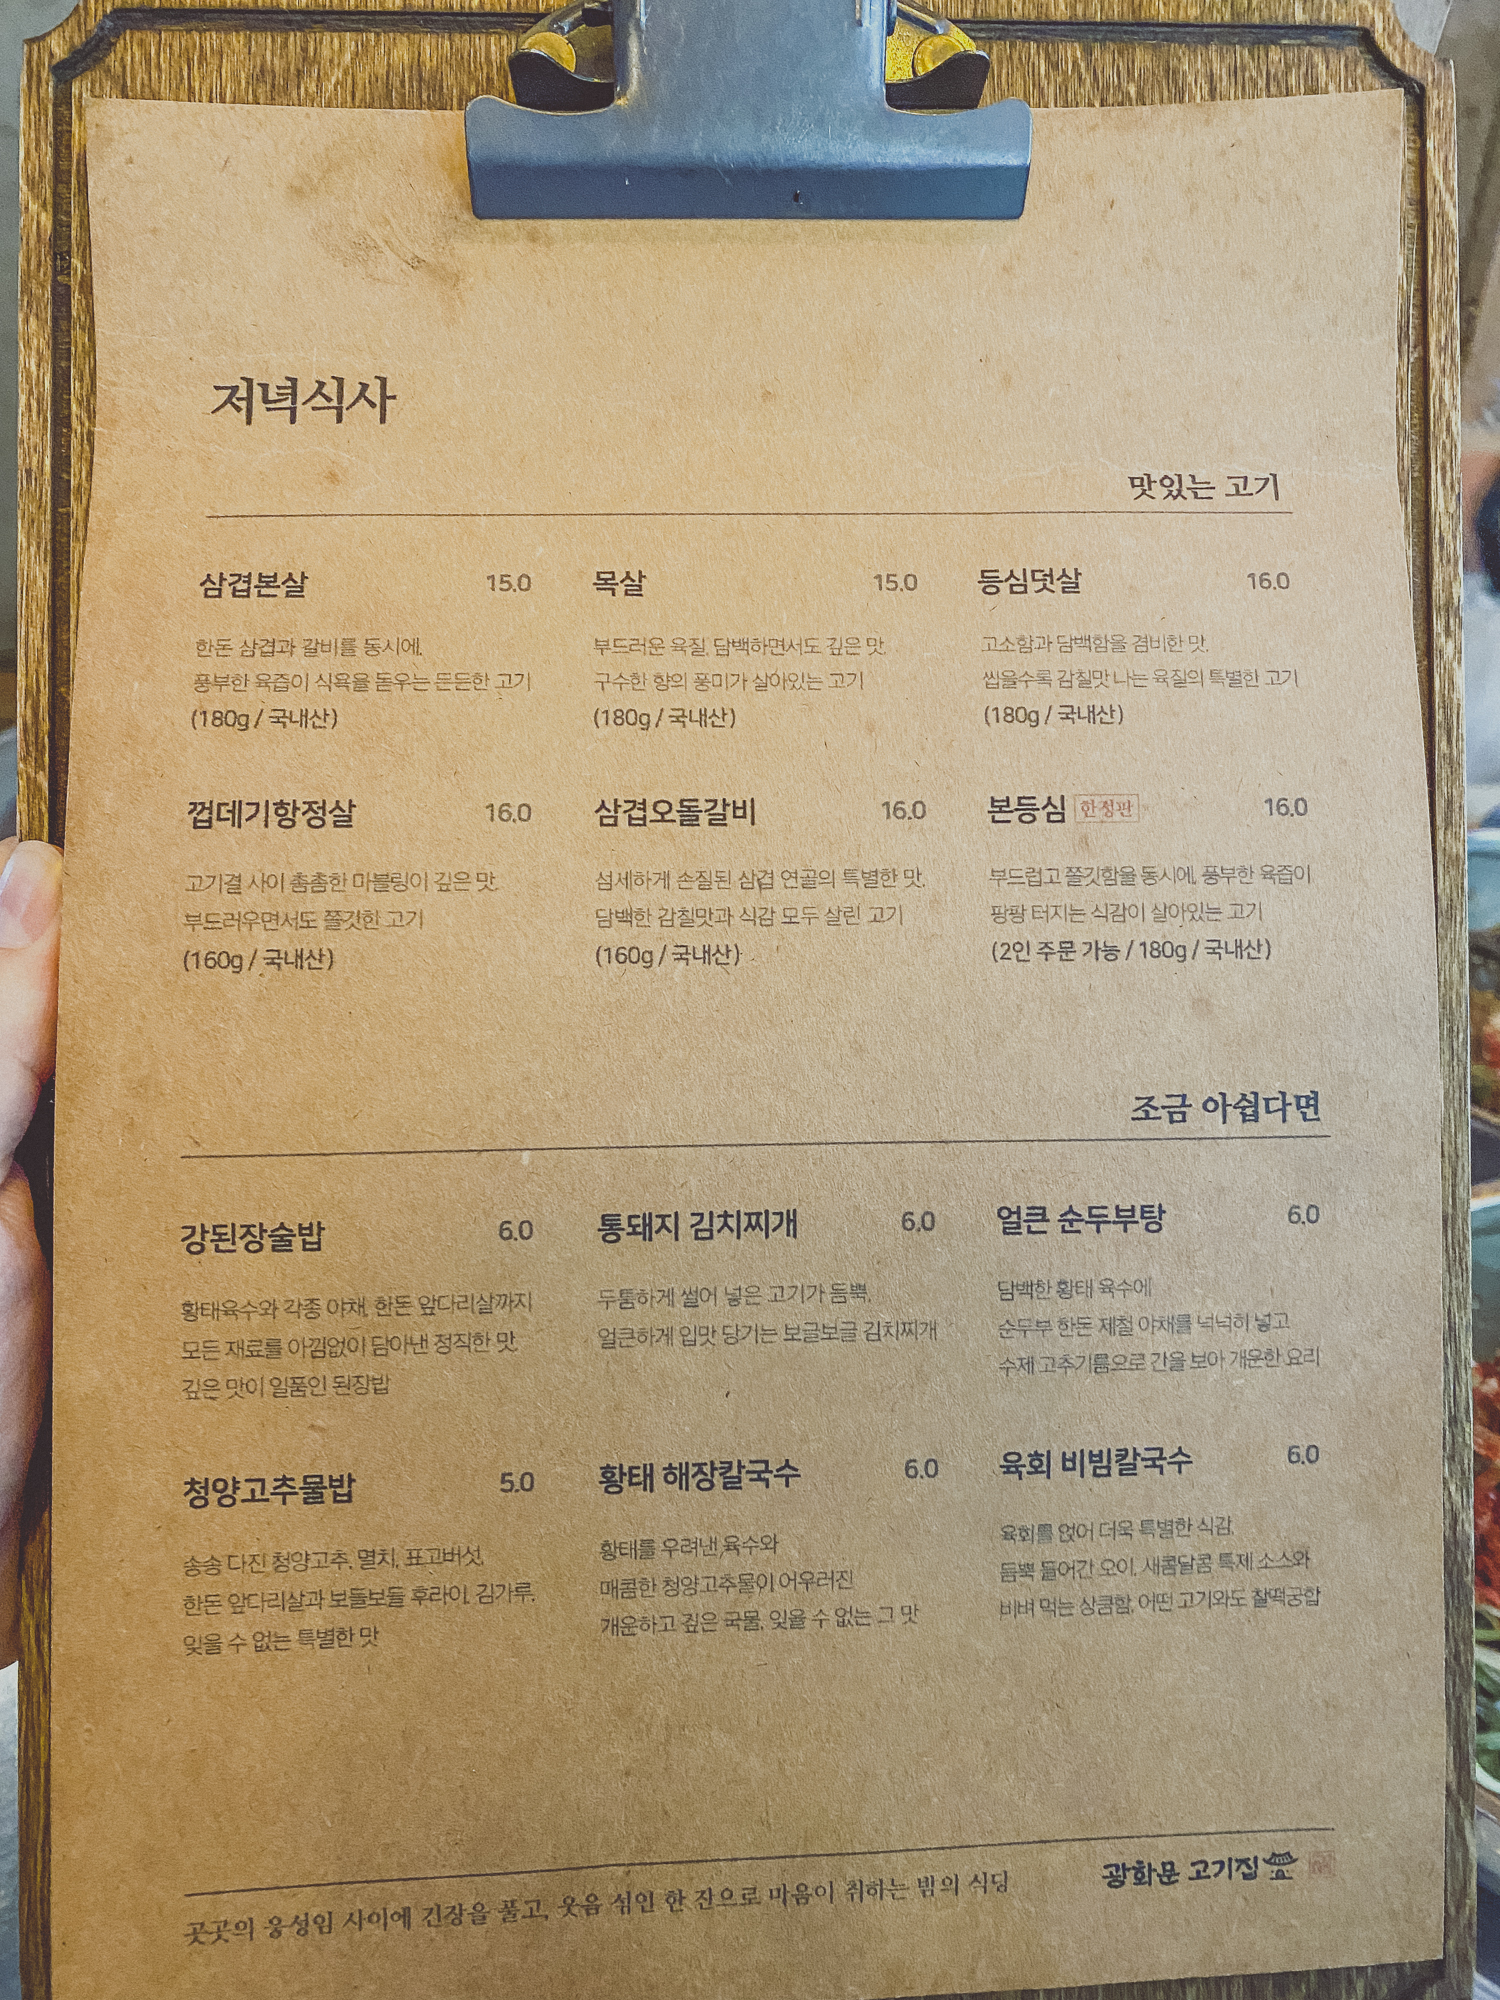 저녁식사
맛있는 고기
삼겹본살 15.0
한돈 삼겹과 갈비를 동시에,
풍부한 육즙이 식욕을 돋우는 든든한 고기
(180g / 국내산)
목살 15.0
부드러운 육질, 담백하면서도 깊은 맛,
구수한 향의 풍미가 살아있는 고기
(180g / 국내산)
등심덧살 16.0
고소함과 담백함을 겸비한 맛,
씹을수록 감칠맛 나는 육질의 특별한 고기
(180g / 국내산)
껍데기항정살 16.0
고기결 사이 촘촘한 마블링이 깊은 맛,
부드러우면서도 쫄깃한 고기
(160g / 국내산)
삼겹오돌갈비 16.0
섬세하게 손질된 삼겹 연골의 특별한 맛,
담백한 감칠맛과 식감 모두 살린 고기
(160g / 국내산)
본등심 한정판 16.0
부드럽고 쫄깃함을 동시에, 풍부한 육즙이
팡팡 터지는 식감이 살아있는 고기
(2인 주문 가능 / 180g / 국내산)
조금 아쉽다면
강된장술밥 6.0
황태육수와 각종 야채, 한돈 앞다리살까지
모든 재료를 아낌없이 담아낸 정직한 맛,
깊은 맛이 일품인 된장밥
통돼지 김치찌개 6.0
두툼하게 썰어 넣은 고기가 듬뿍,
얼큰하게 입맛 당기는 보글보글 김치찌개
얼큰 순두부탕 6.0
담백한 황태 육수에
순두부 한돈 제철 야채를 넉넉히 넣고
수제 고추기름으로 간을 보아 개운한 요리
청양고추물밥 5.0
송송 다진 청양고추, 멸치, 표고버섯,
한돈 앞다리살과 보들보들 후라이, 김가루,
잊을 수 없는 특별한 맛
황태 해장칼국수 6.0
황태를 우려낸 육수와
매콤한 청양고추물이 어우러진
개운하고 깊은 국물, 잊을 수 없는 그 맛
육회 비빔칼국수 6.0
육회를 얹어 더욱 특별한 식감,
듬뿍 들어간 오이, 새콤달콤 특제 소스와
비벼 먹는 상큼함, 어떤 고기와도 찰떡궁합
곳곳의 웅성임 사이에 긴장을 풀고, 웃음 섞인 한 잔으로 마음이 취하는 밤의 식당
광화문 고기집